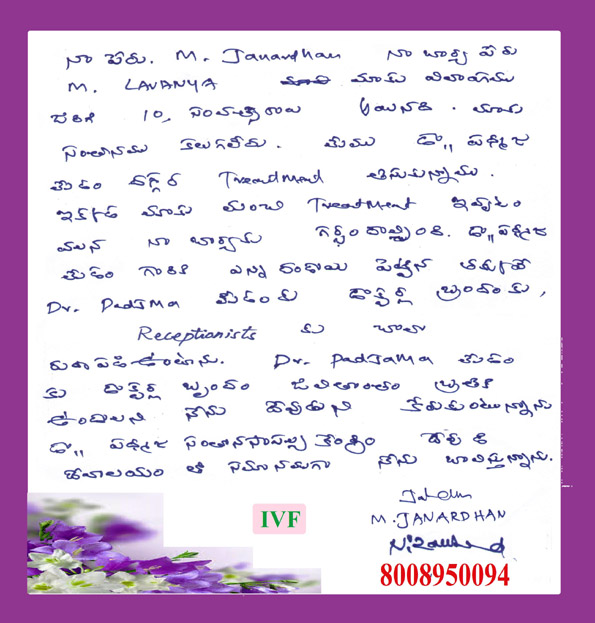 నా పేరు. M. Janardhan నా భార్య పేరు
M. LAVANYA మాకు వివాహము
జరిగి 10, సంవత్సరాలు అయినది. మాకు
సంతానము కలుగలేదు. మేము డా,, పద్మజ
మేడం దగ్గర Treatment తీసుకున్నాము.
ఇక్కడ మాకు మంచి Treatment ఇవ్వడం
వలన నా భార్యకు గర్భం దాల్చింది. డా,, పద్మజ
మేడం గారికి
Dr. Padjma మేడంకు డాక్టర్ల బృందంకు,
Receptionists కు చాలా
రుణపడి ఉంటాను. Dr. PadJama మేడం
కు డాక్టర్ల బృందం జీవితాంతం బ్రతికి
ఉండాలని నేను దేవుడుని కోరుకుంటున్నాను
డా,, పద్మజ సంతానసాఫల్య కేంద్రం దేవుడి
దేవాలయం తో సమానముగా నేను భావిస్తున్నాను.
M. JANARDHAN
Nizamabad
IVF
8008950094